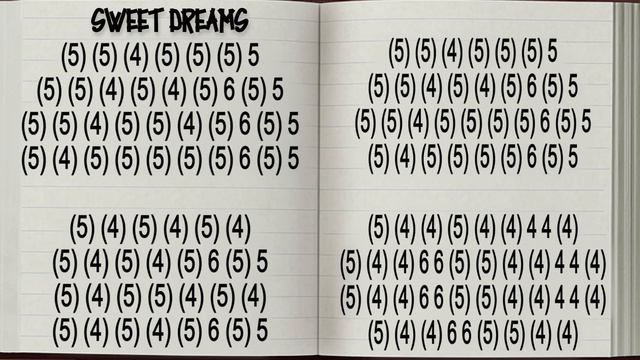 SWEET DREAMS
(5) (5) (4) (5) (5) (5) 5
(5) (5) (4) (5) (4) (5) 6 (5) 5
(5) (5) (4) (5) (5) (4) (5) 6 (5) 5
(5) (4) (5) (5) (5) (5) (5) 6 (5) 5
(5) (4) (5) (4) (5) (4)
(5) (4) (5) (4) (5) 6 (5) 5
(5) (4) (5) (5) (4) (5) (4)
(5) (4) (5) (4) (5) 6 (5) 5
(5) (5) (4) (5) (5) (5) 5
(5) (5) (4) (5) (4) (5) 6 (5) 5
(5) (5) (4) (5) (5) (5) (5) 6 (5) 5
(5) (4) (5) (5) (5) (5) 6 (5) 5
(5) (4) (4) (5) (4) (4) 4 4 (4)
(5) (4) (4) 6 6 (5) (5) (4) (4) 4 4 (4)
(5) (4) (4) 6 6 (5) (5) (4) (4) 4 4 (4)
(5) (4) (4) 6 6 (5) (5) (4) (4)